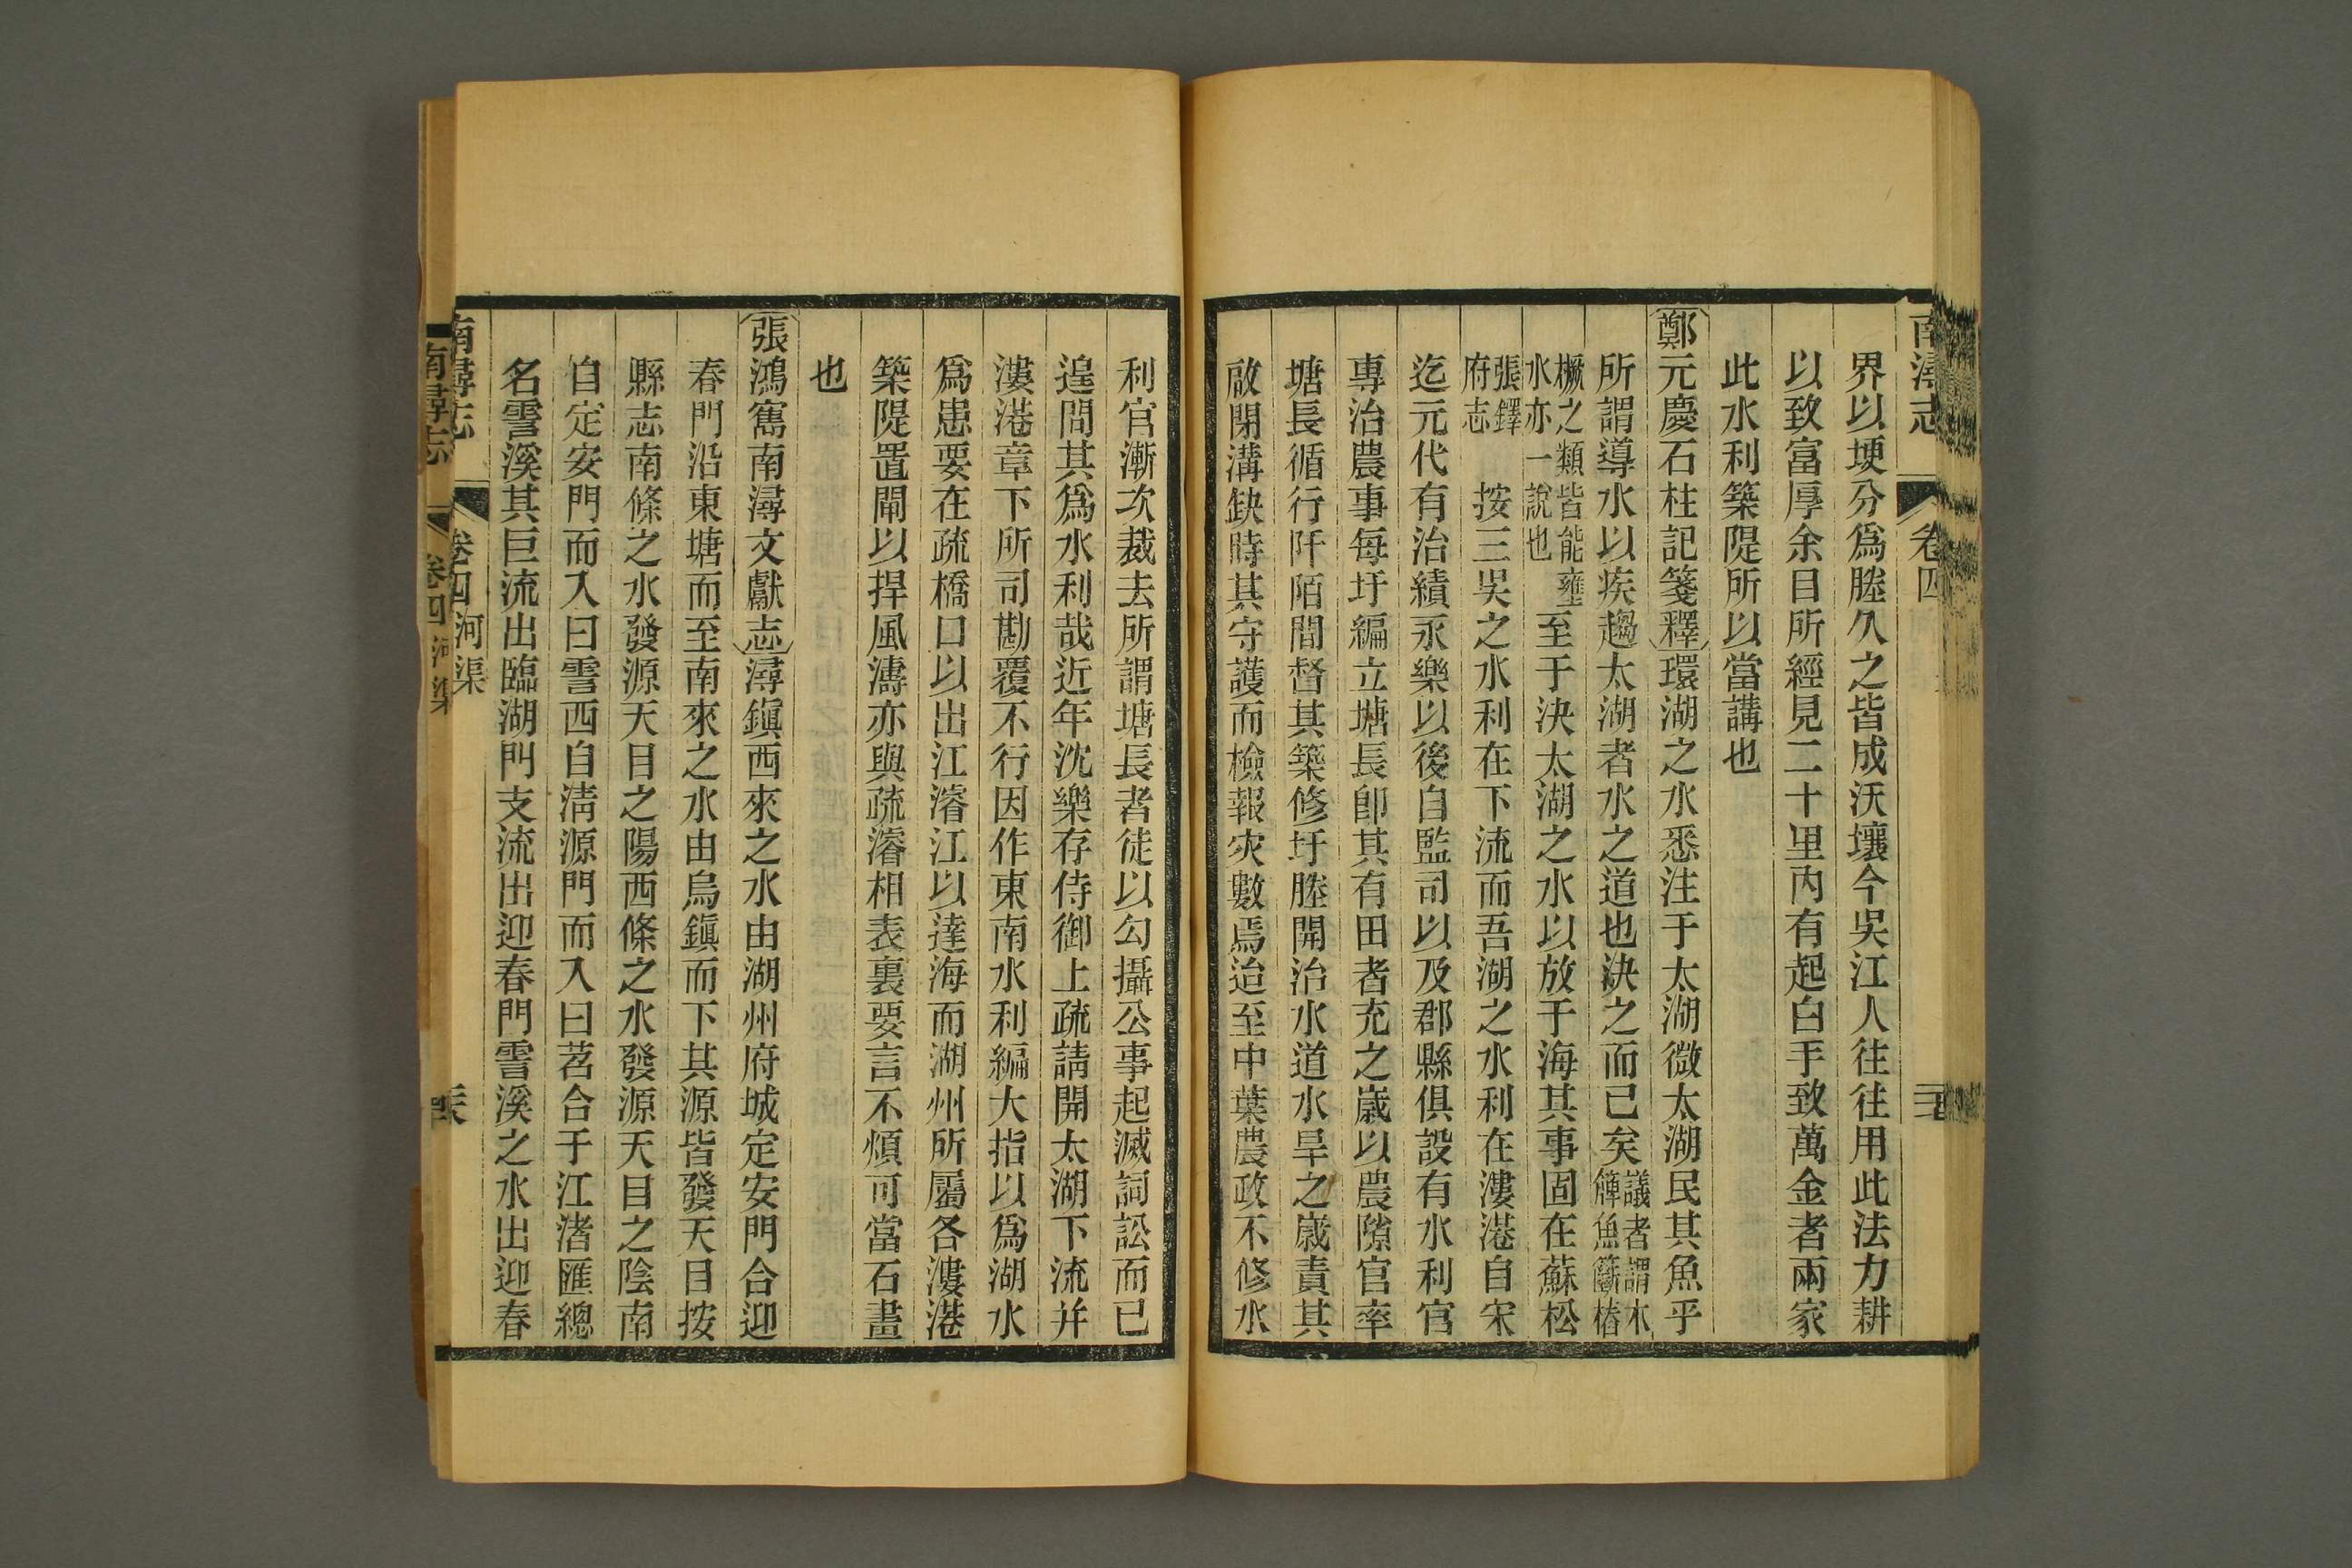 南潯志 卷四
界以埂分爲塍久之皆成沃壤今吳江人往往用此法力耕
以致富厚余目所經見二十里內有起白手致萬金者兩家
此水利築隄所以當講也
鄭元慶石柱記箋釋環湖之水悉注于太湖微太湖民其魚乎
所謂導水以疾趨太湖者水之道也決之而已矣議者謂木簰魚籪樁
橛之類皆能壅水亦一說也至于決太湖之水以放于海其事固在蘇松
張鐸府志 按三吳之水利在下流而吾湖之水利在漊港自宋
迄元代有治績永樂以後自監司以及郡縣俱設有水利官
專治農事每圩編立塘長卽其有田者充之歲以農隙官率
塘長循行阡陌間督其築修圩塍開治水道水旱之歲責其
啟閉溝缺時其守護而檢報灾數焉迨至中葉農政不修水
利官漸次裁去所謂塘長者徒以勾攝公事起滅詞訟而已
遑問其爲水利哉近年沈樂存侍御上疏請開太湖下流幷
漊港章下所司勘覆不行因作東南水利編大指以爲湖水
爲患要在疏橋口以出江濬江以達海而湖州所屬各漊港
築隄置閘以捍風濤亦與疏濬相表裏要言不煩可當石畫
也
張鴻寯南潯文獻志潯鎭西來之水由湖州府城定安門合迎
春門沿東塘而至南來之水由烏鎭而下其源皆發天目按
縣志南條之水發源天目之陽西條之水發源天目之陰南
自定安門而入曰霅西自淸源門而入曰苕合于江渚匯總
名霅溪其巨流出臨湖門支流出迎春門霅溪之水出迎春
南潯志 卷四 河渠
南潯志 卷四 河渠